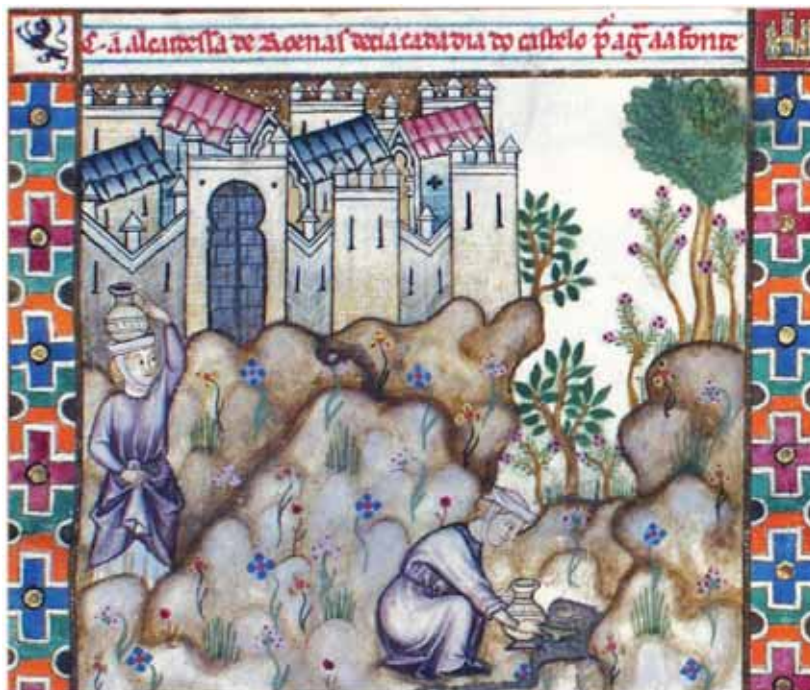 C·a alcaidessa de Roenas decia cada dia do castelo p̃ ag̃ aa fonte